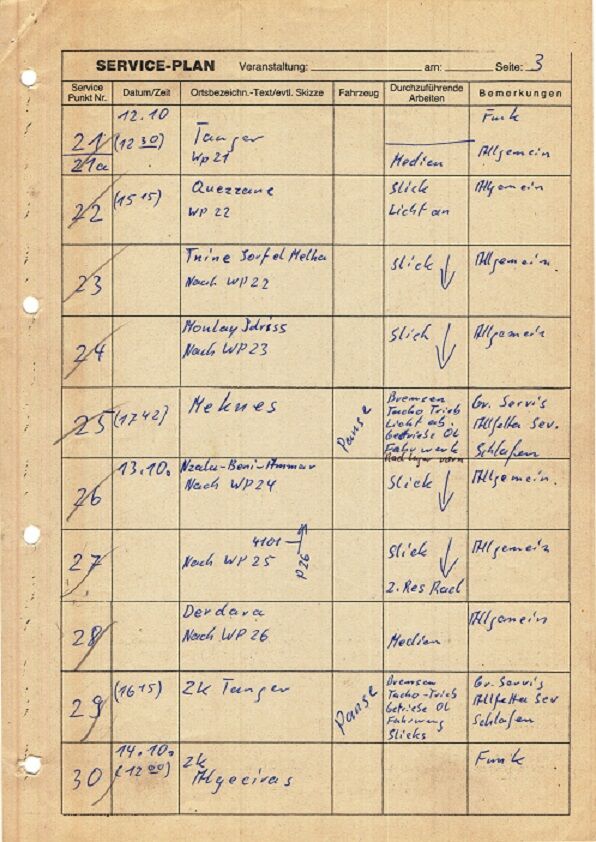 SERVICE-PLAN Veranstaltung: am: Seite: 3
Service Punkt Nr. Datum/Zeit Ortsbezeichn.-Text/evtl. Skizze Fahrzeug Durchzuführende Arbeiten Bemerkungen
12.10 Funk
21 (12 30) Tanger Allgemein
21a Wp21 Medien
Quezzane Slick Allgemein
22 (15 15) WP 22 Licht an
Tnine Sorfel Melha
23 Nach WP22 Slick Allgemein
Moulay Idriss Slick Allgemein
24 Nach WP23
25 (17 42) Meknes Pause Bremsen Gr. Servis
Tacho Trieb Allfetta Ser.
Licht ab.
Getriebe Öl Schlafen
Fahrwerk
Radlager vorn
13.10. Nzala-Beni-Ammar Allgemein
26 Nach WP24 Slick
4101 P26
27 Nach WP 25 Slick Allgemein
2. Res Rad
Derdara Allgemein
28 Nach WP 26 Medien
29 (16 15) ZK Tanger Pause Bremsen Gr. Servis
Tacho-Trieb Allfetta Ser
Getriebe Öl Schlafen
Slicks
14.10. ZK Funk
30 (12 00) Algeciras